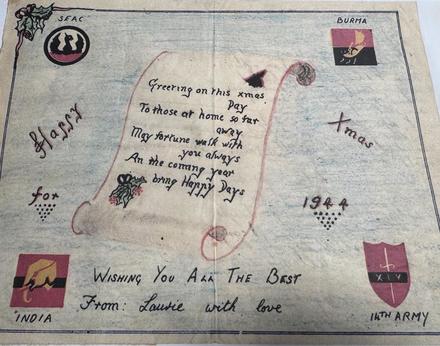 SEAC
BURMA
Greeting on this xmas
Day
To those at home so far
away
May fortune walk with
you always
An the coming year
bring Happy Days
Happy
Xmas
for
1944
WISHING YOU ALL THE BEST
From: Laurie with love
XIV
INDIA
14TH ARMY